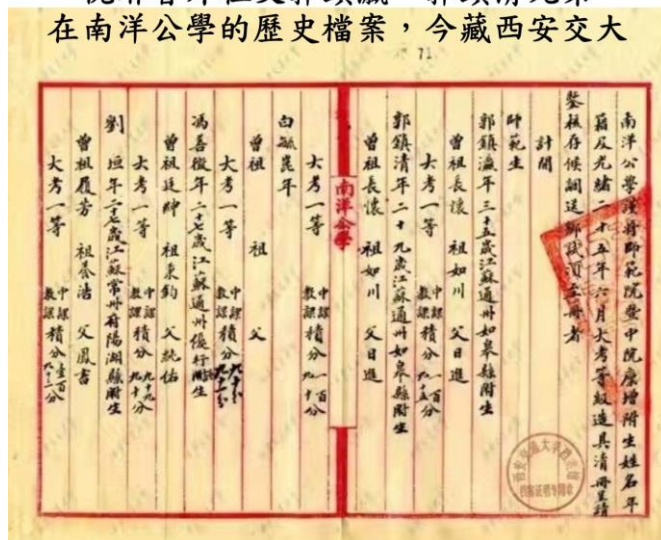 在南洋公學的歷史檔案，今藏西安交大
71
南洋公學謹將師範院暨中院廩增附生姓名年
籍及光緒二十五年六月大考等級造具清冊呈請
鑒核存候調送鄉試須至冊者
計開
師範生
郭鎮瀛年三十五歲江蘇通州如皋縣附生
曾祖長懷 祖如川 父日進
大考一等 中課積分一百分 教課九十五分
郭鎮清年二十九歲江蘇通州如皋縣附生
曾祖長懷 祖如川 父日進
大考一等 中課積分一百分 教課九十分
南洋公學
白毓崑年
曾祖 祖 父
大考一等 中課積分九十分
馮善徵年二十七歲江蘇通州優行附生
曾祖廷紳 祖秉鈞 父統佑
大考一等 中課積分九十九分 教課九十分
劉垣年二十七歲江蘇常州府陽湖縣附生
曾祖履芳 祖養浩 父鳳書
大考一等 中課積分壹百分 教課九十三分